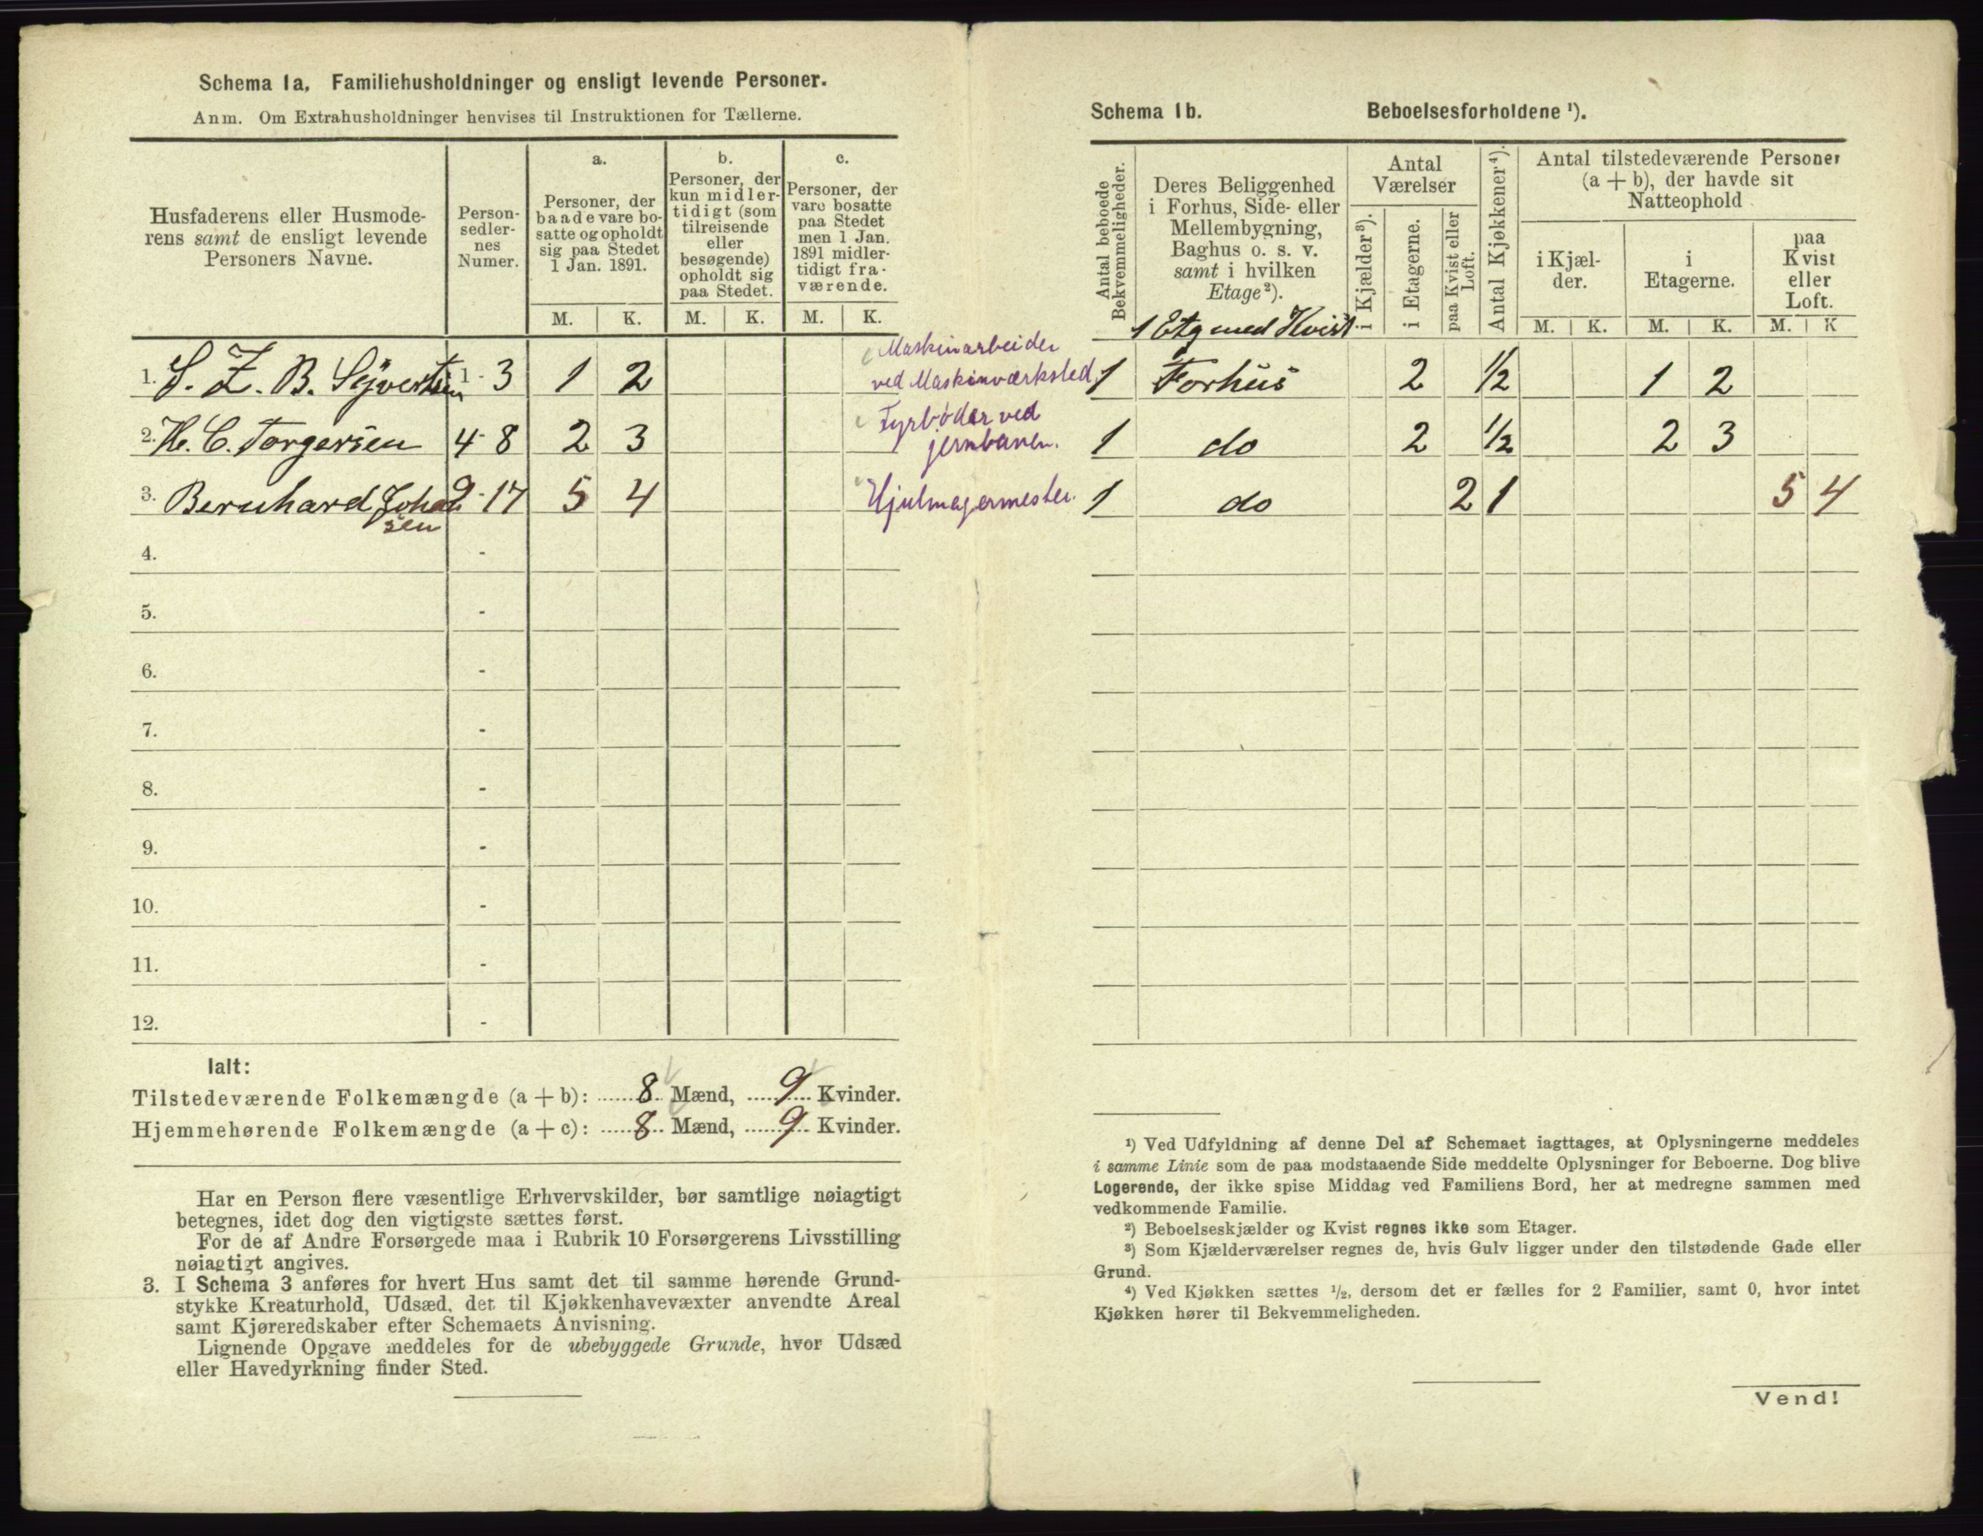 Schema 1a, Familiehusholdninger og ensligt levende Personer.
Anm. Om Extrahusholdninger henvises til Instruktionen for Tællerne.
Husfaderens eller Husmode-
rens samt de ensligt levende
Personers Navne.
Person-
sedler-
nes
Numer.
a.
Personer, der
baade vare bo-
satte og opholdt
sig paa Stedet
1 Jan. 1891.
b.
Personer, der
kun midler-
tidigt (som
tilreisende
eller
besøgende)
opholdt sig
paa Stedet.
c.
Personer, der
vare bosatte
paa Stedet
men 1 Jan.
1891 midler-
tidigt fra-
værende.
M. K. M. K. M. K.
1. S. Z. B. Syvertsen 1 - 3 1 2 Maskinarbeider
ved Maskinværksted
2. H. C. Torgersen 4 - 8 2 3 Fyrbøder ved
jernbanen.
3. Bernhard Johan
sen 9 - 17 5 4 Hjulmagermester.
4. -
5. -
6. -
7. -
8. -
9. -
10. -
11. -
12. -
Ialt:
Tilstedeværende Folkemængde (a + b): 8 Mænd, 9 Kvinder.
Hjemmehørende Folkemængde (a + c): 8 Mænd, 9 Kvinder.
Har en Person flere væsentlige Erhvervskilder, bør samtlige nøiagtigt
betegnes, idet dog den vigtigste sættes først.
For de af Andre Forsørgede maa i Rubrik 10 Forsørgerens Livsstilling
nøiagtigt angives.
3. I Schema 3 anføres for hvert Hus samt det til samme hørende Grund-
stykke Kreaturhold, Udsæd, det til Kjøkkenhavevæxter anvendte Areal
samt Kjøreredskaber efter Schemaets Anvisning.
Lignende Opgave meddeles for de ubebyggede Grunde, hvor Udsæd
eller Havedyrkning finder Sted.
Schema 1b. Beboelsesforholdene ¹).
Antal beboede
Bekvemmeligheder.
Deres Beliggenhed
i Forhus, Side- eller
Mellembygning,
Baghus o. s. v.
samt i hvilken
Etage²).
Antal
Værelser
i Kjælder³).
i Etagerne.
paa Kvist eller
Loft.
Antal Kjøkkener⁴).
Antal tilstedeværende Personer
(a + b), der havde sit
Natteophold
i Kjæl-
der.
i
Etagerne.
paa
Kvist
eller
Loft.
M. K. M. K. M. K
1 Etg med Kvist
1 Forhus 2 ½ 1 2
1 do 2 ½ 2 3
1 do 2 1 5 4
¹) Ved Udfyldning af denne Del af Schemaet iagttages, at Oplysningerne meddeles
i samme Linie som de paa modstaaende Side meddelte Oplysninger for Beboerne. Dog blive
Logerende, der ikke spise Middag ved Familiens Bord, her at medregne sammen med
vedkommende Familie.
²) Beboelseskjælder og Kvist regnes ikke som Etager.
³) Som Kjælderværelser regnes de, hvis Gulv ligger under den tilstødende Gade eller
Grund.
⁴) Ved Kjøkken sættes ½, dersom det er fælles for 2 Familier, samt 0, hvor intet
Kjøkken hører til Bekvemmeligheden.
Vend!